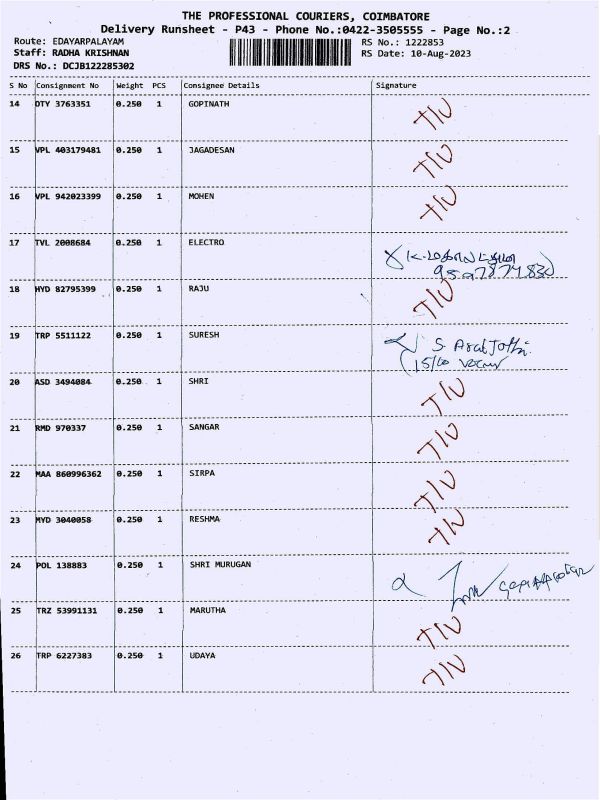 THE PROFESSIONAL COURIERS, COIMBATORE
Delivery Runsheet - P43 - Phone No.:0422-3505555 - Page No.:2
Route: EDAYARPALAYAM RS No.: 1222853
Staff: RADHA KRISHNAN RS Date: 10-Aug-2023
DRS No.: DCJB122285302
S No Consignment No Weight PCS Consignee Details Signature
14 DTY 3763351 0.250 1 GOPINATH T/W
15 VPL 403179481 0.250 1 JAGADESAN T/W
16 VPL 942023399 0.250 1 MOHEN T/W
17 TVL 2008684 0.250 1 ELECTRO
18 HYD 82795399 0.250 1 RAJU T/W
19 TRP 5511122 0.250 1 SURESH S.
20 ASD 3494084 0.250 1 SHRI T/W
21 RMD 970337 0.250 1 SANGAR T/W
22 MAA 860996362 0.250 1 SIRPA T/W
23 MYD 3040058 0.250 1 RESHMA T/W
24 POL 138883 0.250 1 SHRI MURUGAN
25 TRZ 53991131 0.250 1 MARUTHA T/W
26 TRP 6227383 0.250 1 UDAYA T/W